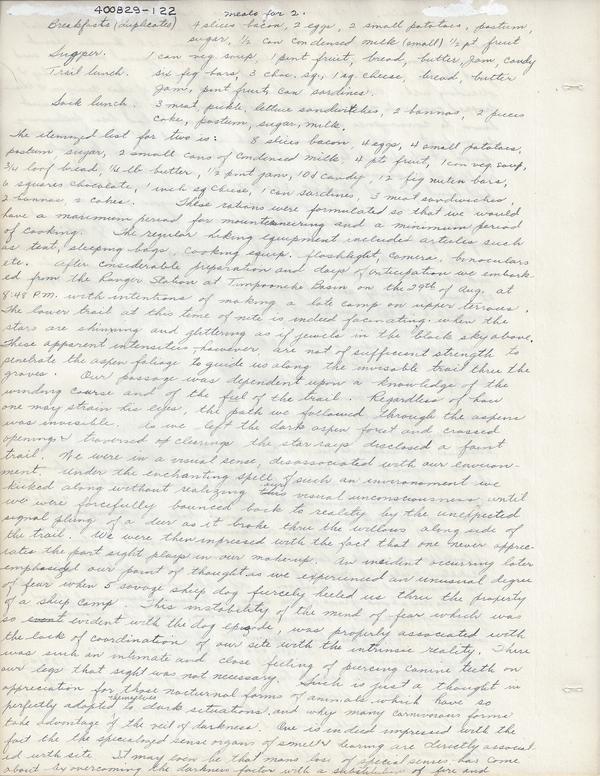 400829-122
meals for 2.
Breakfasts (duplicates) 4 slices bacon, 2 eggs, 2 small potatoes, postum,
sugar, 1/2 can condensed milk (small) 1/2 pt fruit
Supper. 1 can veg. soup, 1 pint fruit, bread, butter, jam, candy
Trail lunch. six fig bars, 3 choc. sq., 1 sq. cheese, bread, butter
Jam, pint fruit, can sardines.
Sack lunch. 3 meat, pickle, lettuce sandwitches, 2 bannas, 2 pieces
cake, postum, sugar, milk.
The itemized list for two is: 8 slices bacon, 4 eggs, 4 small potatoes,
postum sugar, 2 small cans of condensed milk, 4 pts fruit, 1 can veg. soup,
3/4 loaf bread, 1/4 lb butter, 1/2 pint jam, 10¢ candy, 12 fig nuten bars,
6 squares chocolate, 1 inch sq cheese, 1 can sardines, 3 meat sandwiches,
2 bannas, 2 cakes. These rations were formulated so that we would
have a maximum period for mountaineering and a minimum period
of cooking. The regular hiking equipment included articles such
as tent, sleeping bags, cooking equip. flashlight, camera, binoculars
etc. After considerable preparation and days of anticipation we embark-
ed from the Ranger Station at Timpooneke Basin on the 29th of Aug. at
8:48 P.M. with intentions of making a late camp on upper terraces.
The lower trail at this time of nite is indeed facinating when the
stars are shinning and glittering as if jewels in the black sky above.
These apparent intensities, however, are not of sufficent strength to
penetrate the aspen foliage to guide us along the invisable trail thru the
groves. Our passage was dependent upon a knowledge of the
winding course and of the feel of the trail. Regardless of how
one may strain his eyes, the path we followed through the aspens
was invesible. As we left the dark aspen forest and crossed
openings & traversed clearings the star rays disclosed a faint
trail. We were in a visual sense, disassociated with our environ-
ment, under the enchanting spell of such an invironament we
kicked along without realizing our visual unconsciousness, until
we were forcefully bounced back to reality by the unexpected
signal plung of a deer as it broke thru the willows along side of
the trail. We were then impressed with the fact that one never apprec-
iates the part sight plays in our makeup. An insident occurring later
emphasized our point of thought as we experienced an unusual degree
of fear when 5 savage sheep dog fiercely heeled us thru the property
of a sheep camp. This instability of the mind of fear which was
so evident with the dog episode, was properly associated with
the lack of coordination of our site with the intrinsic reality. There
was such an intimate and close feeling of piercing canine teeth on
our legs that sight was not necessary. Such is just a thought in
appreciation for those nocturnal forms of animals which have so
perfectly adapted themselves to dark situations, and why many carnivorous forms
take advantage of the veil of darkness. One is indeed impressed with the
fact the the specialized sense organs of smell & hearing are directly associat
ed with site. It may soon be that mans loss of special senses has come
about by overcoming the darkness factor with a substitution of fire and